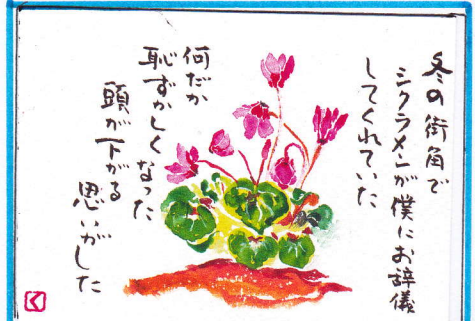 冬の街角で
シクラメンが僕にお辞儀
してくれていた
何だか
恥ずかしくなった
頭が下がる
思いがした
く